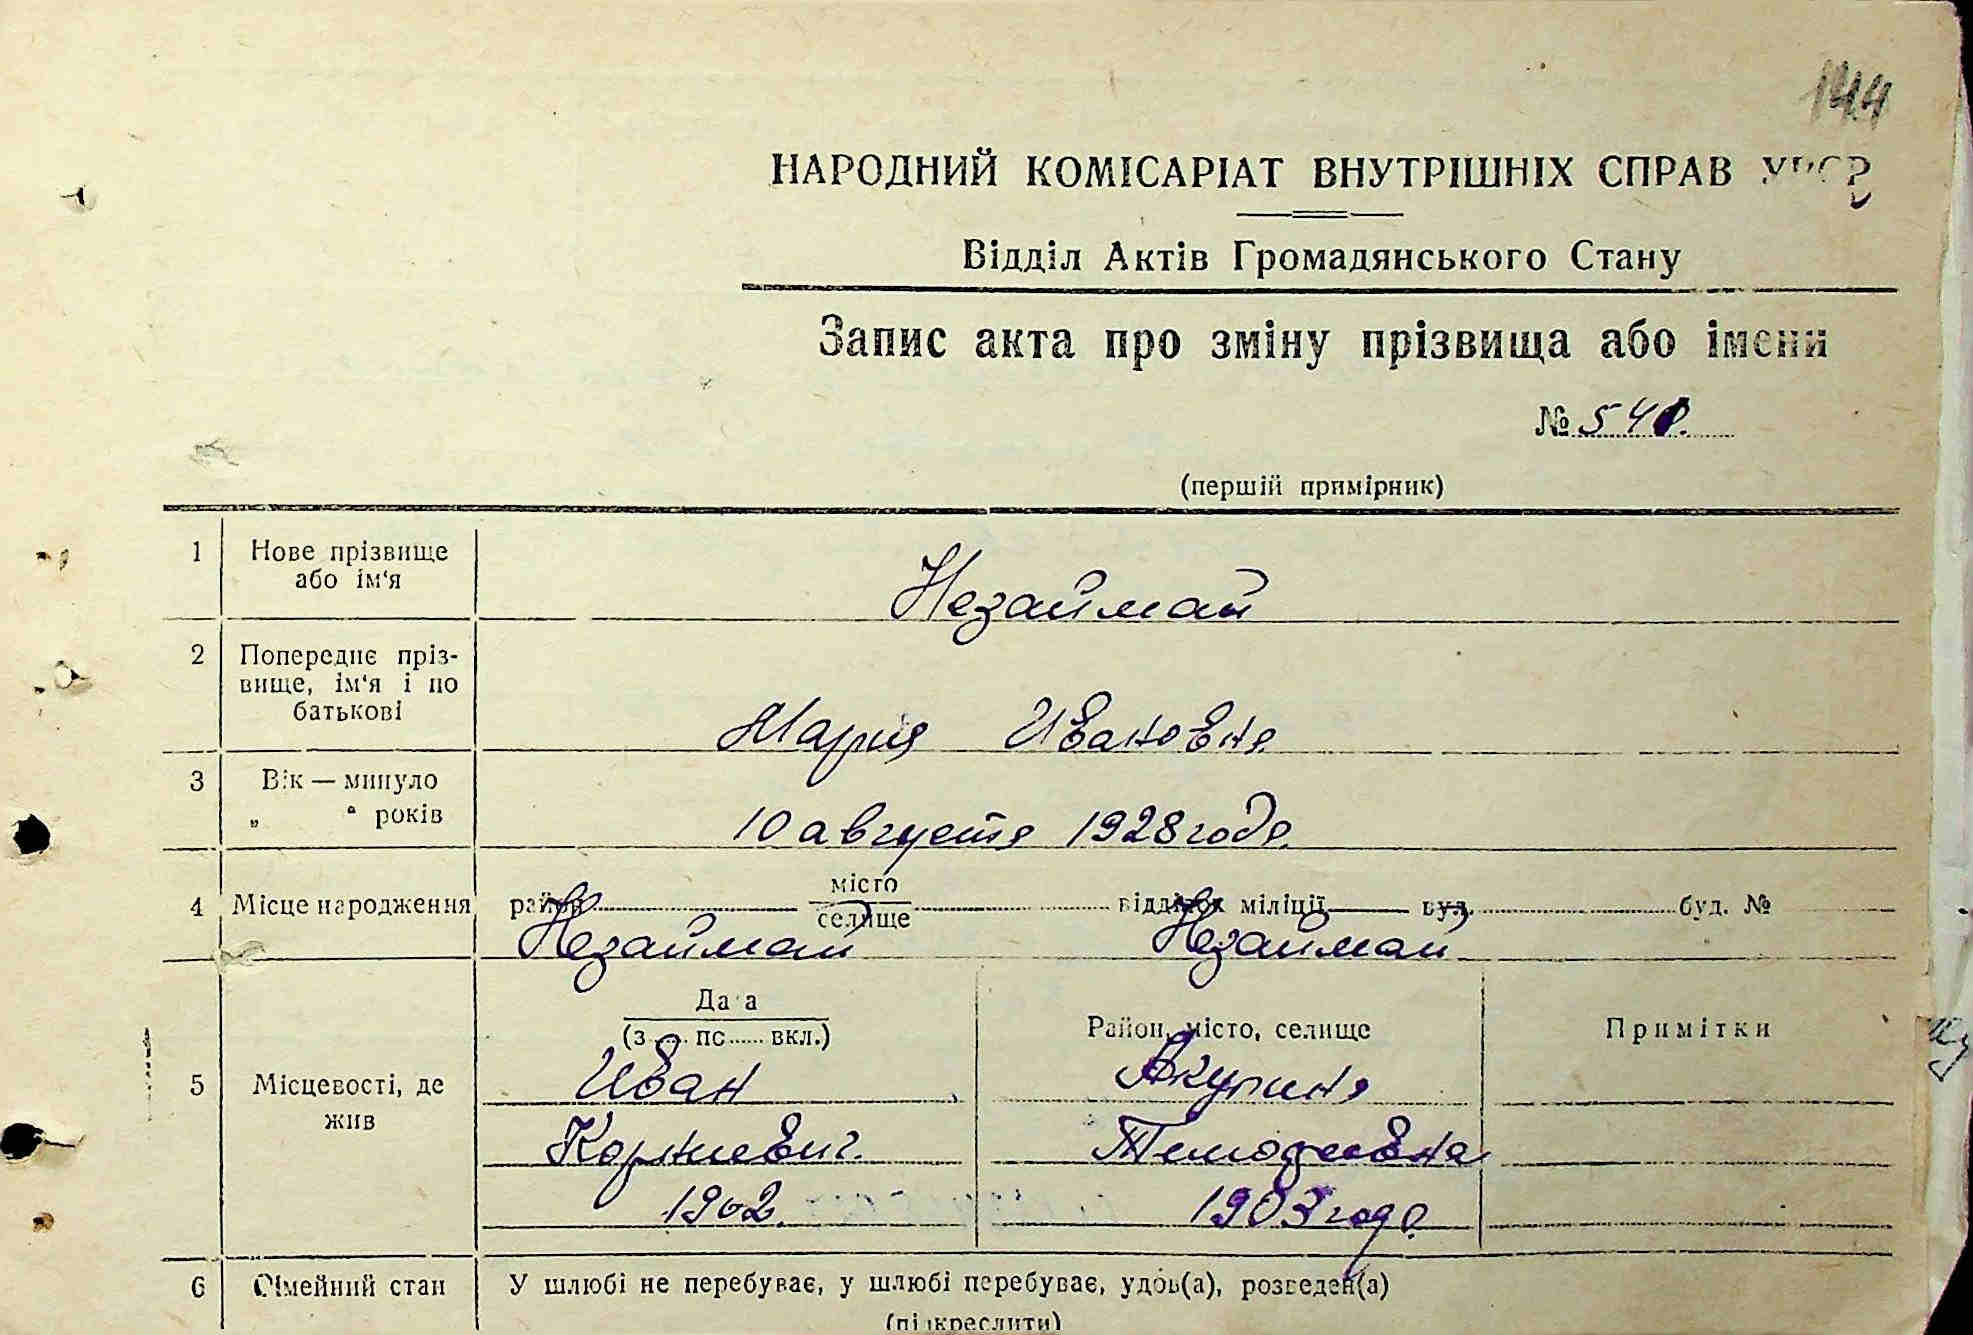 144
НАРОДНИЙ КОМІСАРІАТ ВНУТРІШНІХ СПРАВ
Відділ Актів Громадянського Стану
Запис акта про зміну прізвища або імени
№ 540.
(першій примірник)
1 Нове прізвище або ім'я
Незаймай
2 Попереднє прізвище, ім'я і по батькові
Мария Ивановна
3 Вік — минуло „ “ років
10 августа 1928 года
4 Місце народження район місто селище відділок міліції вул. буд. №
Незаймай Незаймай
5 Місцевості, де жив
Дата (з ... по ... вкл.) Район, місто, селище Примітки
Иван Акулина
Корниевич Тимофеевна
1902. 1903 года
6 Сімейний стан У шлюбі не перебуває, у шлюбі перебуває, удов(а), розведен(а)
(підкреслити)